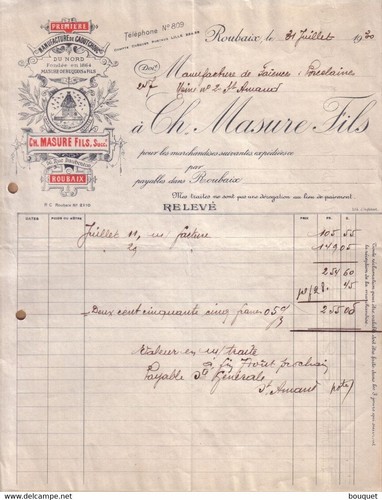 PREMIÈRE
MANUFACTURE DE CAOUTCHOUC
DU NORD
Fondée en 1864
MASURE-DERUQUES & FILS
CH. MASURE FILS, Succ.
ROUBAIX
Téléphone Nº 809
LILLE
Roubaix, le 31 Juillet 1930
Doit
Manufacture de Faïence & Porcelaine
Usine nº 2 St Amand
à Ch. Masure Fils
pour les marchandises suivantes expédiées
par
payables dans Roubaix
Mes traites ne sont pas une dérogation au lieu de paiement.
RELEVÉ
DATES
PRIX
FR.
C.
Juillet 11, m/ facture 105 55
29 149 05
254 60
45
Deux cent cinquante cinq francs 05 255 05
Valeur en m/ traite
fin Août prochain
Payable Sté Générale
St Amand
www.delcampe.net
bouquet